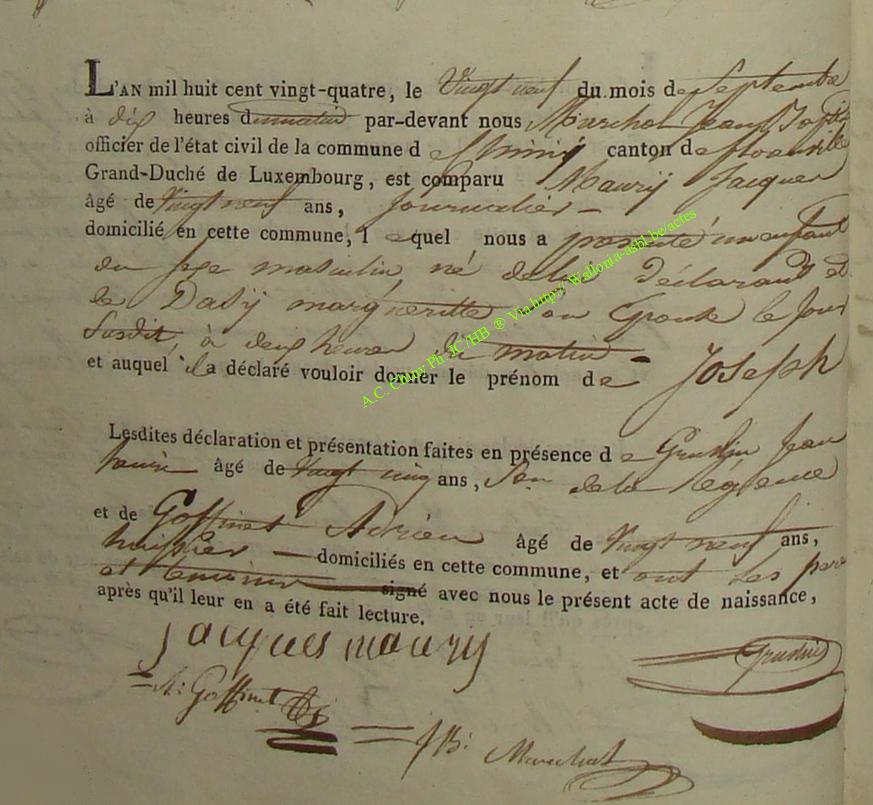 L'AN mil huit cent vingt-quatre, le Vingt neuf du mois de Septembre
à dix heures du matin par-devant nous Marechal Jean Bapt
officier de l'état civil de la commune d e Chiny canton de florenville
Grand-Duché de Luxembourg, est comparu Maurÿ Jacques
âgé de Vingt neuf ans, Journalier
domicilié en cette commune, l equel nous a presenté un enfant
du sexe masculin né de lui Déclarant et
de Dasÿ marguerite son Epouse le jour
Susdit, à heures du matin
et auquel il a déclaré vouloir donner le prénom de Joseph
Lesdites déclaration et présentation faites en présence d e Jean
âgé de Vingt cinq ans, de la régence
et de Goffinet Adrien âgé de Vingt neuf ans,
huissier domiciliés en cette commune, et ont les pere
et temoins signé avec nous le présent acte de naissance,
après qu'il leur en a été fait lecture.
jacques maury
A: Goffinet
JB: Marechal
A.C. Chiny Ph. JC/HB ® Via http: Wallonia-asbl.be/actes